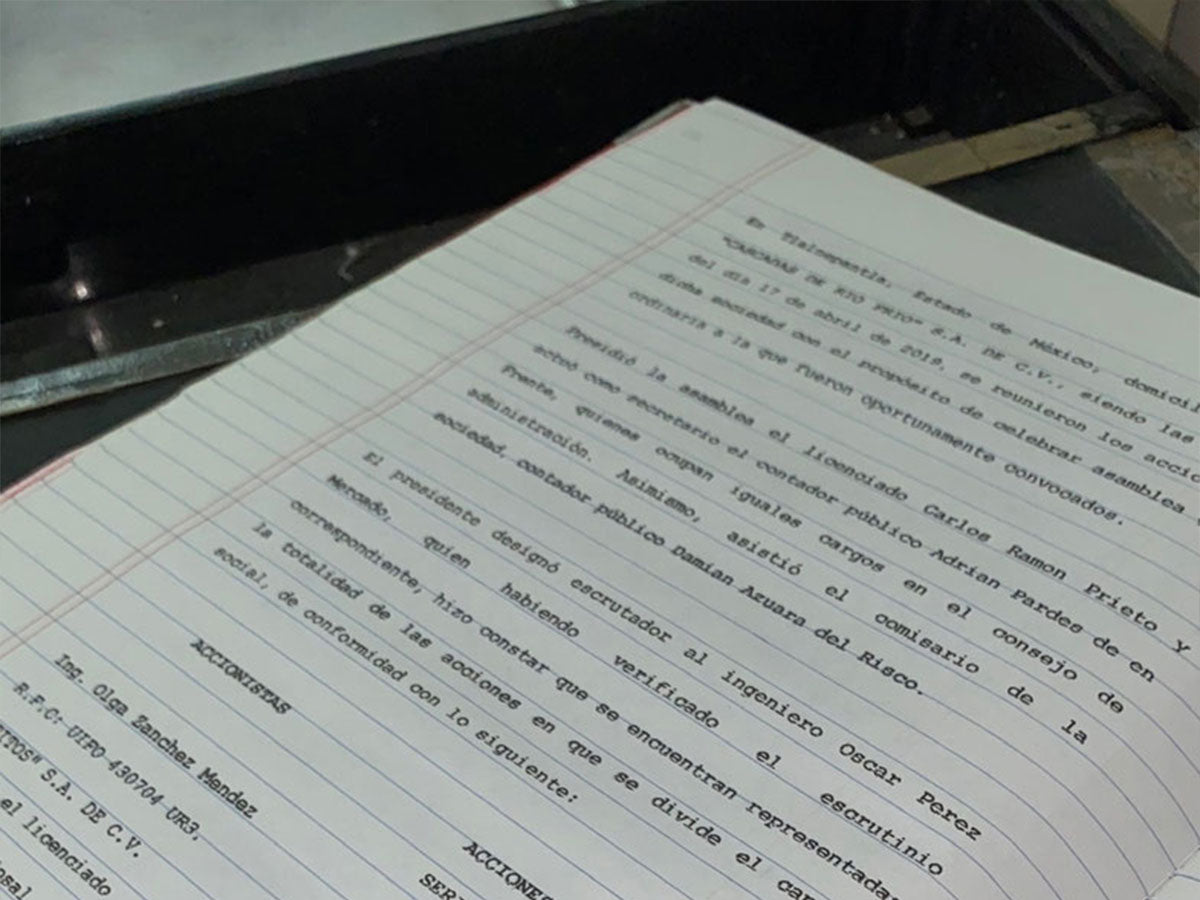 En Tlalnepantla, Estado de México, domicili
"CASCADAS DE RIO FRIO" S.A. DE C.V., siendo las
del día 17 de abril de 2019, se reunieron los accio
dicha sociedad con el propósito de celebrar asamblea
ordinaria a la que fueron oportunamente convocados.
Presidió la asamblea el licenciado Carlos Ramon Prieto Y
actuó como secretario el contador público Adrian Pardes de en
Frente, quienes ocupan iguales cargos en el consejo de
administración. Asimismo, asistió el comisario de la
sociedad, contador público Damian Azuara del Risco.
El presidente designó escrutador al ingeniero Oscar Perez
Mercado, quien habiendo verificado el escrutinio
correspondiente, hizo constar que se encuentran representada
la totalidad de las acciones en que se divide el cap
social, de conformidad con lo siguiente:
ACCIONISTAS
ACCIONES
SER
Ing. Olga Zanchez Mendez
R.F.C:-UIFO-430704 UR3,
ITOS" S.A. DE C.V.
el licenciado
osal